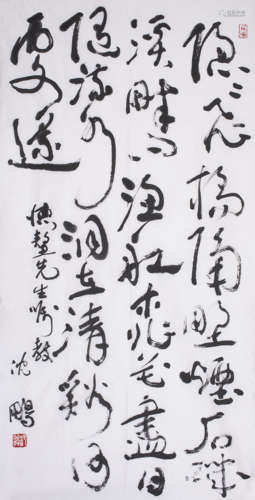 隱〻飛橋隔野煙石磯
溪畔问渔船桃花盡日
随流水洞在清谿何
處邊
先生嘱教
沈鵬